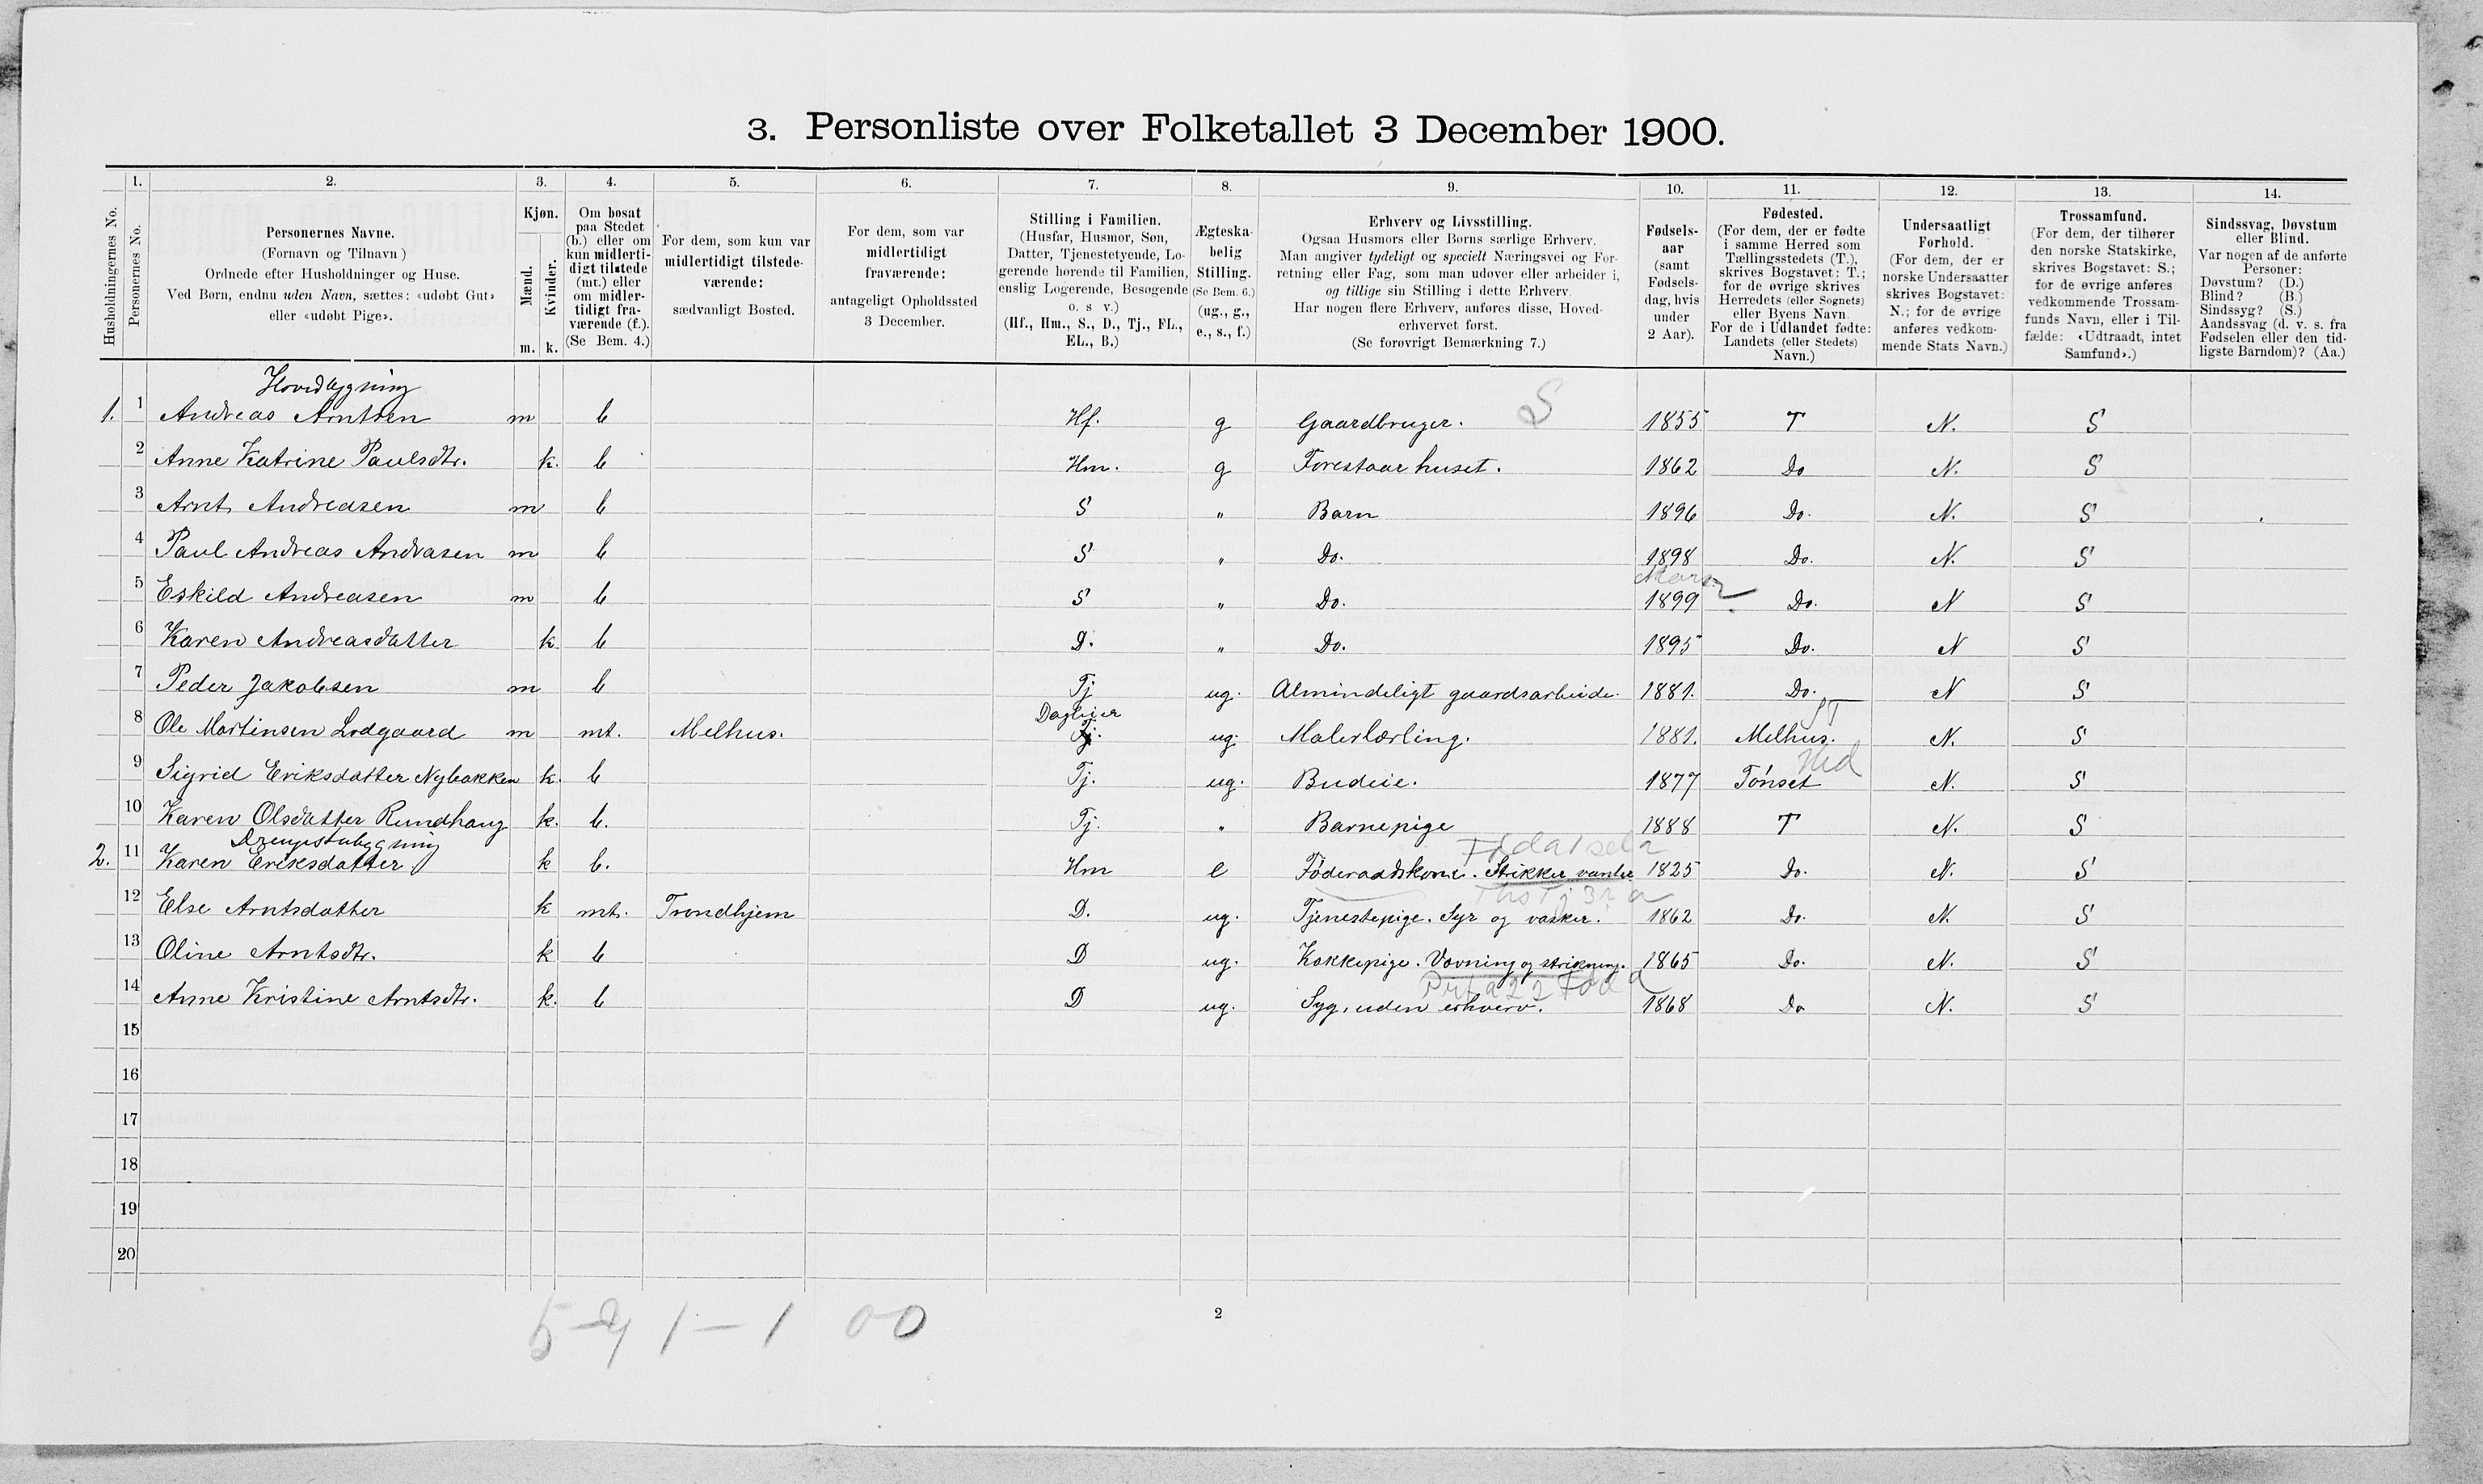 3. Personliste over Folketallet 3 December 1900.
1. 2. 3. 4. 5. 6. 7. 8. 9. 10. 11. 12. 13. 14.
Husholdningernes No.
Personernes No.
Personernes Navne.
(Fornavn og Tilnavn)
Ordnede efter Husholdninger og Huse.
Ved Børn, endnu uden Navn, sættes: «udøbt Gut»
eller «udøbt Pige».
Kjøn.
Mænd.
Kvinder.
m. k.
Om bosat
paa Stedet
(b.) eller om
kun midlerti-
digt tilstede
(mt.) eller
om midler-
tidigt fra-
værende (f.).
(Se Bem. 4.)
For dem, som kun var
midlertidigt tilstede-
værende:
sædvanligt Bosted.
For dem, som var
midlertidigt
fraværende:
antageligt Opholdssted
3 December.
Stilling i Familien.
(Husfar, Husmor, Søn,
Datter, Tjenestetyende, Lo-
gerende hørende til Familien,
enslig Logerende, Besøgende
o. s v.)
(Hf., Hm., S., D., Tj., FL.,
EL., B.)
Ægteska-
belig
Stilling.
(Se Bem. 6.)
(ug., g.,
e., s., f.)
Erhverv og Livsstilling.
Ogsaa Husmors eller Børns særlige Erhverv.
Man angiver tydeligt og specielt Næringsvei og For-
retning eller Fag, som man udøver eller arbeider i,
og tillige sin Stilling i dette Erhverv.
Har nogen flere Erhverv, anføres disse, Hoved-
erhvervet først.
(Se forøvrigt Bemærkning 7.)
Fødsels-
aar
(samt
Fødsels-
dag, hvis
under
2 Aar).
Fødested.
(For dem, der er fødte
i samme Herred som
Tællingsstedets (T.),
skrives Bogstavet: T.;
for de øvrige skrives
Herredets (eller Sognets)
eller Byens Navn.
For de i Udlandet fødte:
Landets (eller Stedets)
Navn.)
Undersaatligt
Forhold.
(For dem, der er
norske Undersaatter
skrives Bogstavet:
N.; for de øvrige
anføres vedkom-
mende Stats Navn.)
Trossamfund.
(For dem, der tilhører
den norske Statskirke,
skrives Bogstavet: S.;
for de øvrige anføres
vedkommende Trossam-
funds Navn, eller i Til-
fælde: «Udtraadt, intet
Samfund».)
Sindssvag, Døvstum
eller Blind.
Var nogen af de anførte
Personer:
Døvstum? (D.)
Blind? (B.)
Sindssyg? (S.)
Aandssvag (d. v. s. fra
Fødselen eller den tid-
ligste Barndom)? (Aa.)
Hovedbygning
1. 1 Andreas Arntsen m b Hf. g Gaardbruger. S 1855 T N. S
2 Anne Katrine Paulsdtr. k. b Hm. g Forestaar huset. 1862 Do N. S
3 Arnt Andreasen m b S " Barn 1896 Do. N. S
4 Paul Andreas Andrasen m b S " Do. 1898 Do. N. S
5 Eskild Andreasen m b S " Do. 1899 Do. N S
6 Karen Andreasdatter k. b D. " Do. 1895 Do. N S
7 Peder Jakobsen m b Tj ug. Almindeligt gaardsarbeide. 1881. Do. N S
8 Ole Martinsen Lodgaard m mt. Melhus. Tj. ug. Malerlærling. 1881. Melhus. ST N. S
9 Sigrid Eriksdatter Nybakken k. b Tj. ug. Budeie. 1877 Tønset Hed N. S
10 Karen Olsdatter Rundhaug k. b. Tj. " Barnepige 1888 T N. S
2. 11 Karen Eriksdatter k b. Hm e Føderaadskone. Strikker vanter 1825 Do. N. S
12 Else Arntsdatter k mt. Trondhjem D. ug. Tjenestepige. Syr og vasker. 1862 Do. N. S
13 Oline Arntsdtr. k b D ug. Kokkepige. Vævning og strikning. 1865 Do. N. S
14 Anne Kristine Arntsdtr. k. b D ug. Syg, uden erhverv. 1868 Do N. S
15
16
17
18
19
20
1 – 1 0–0
2